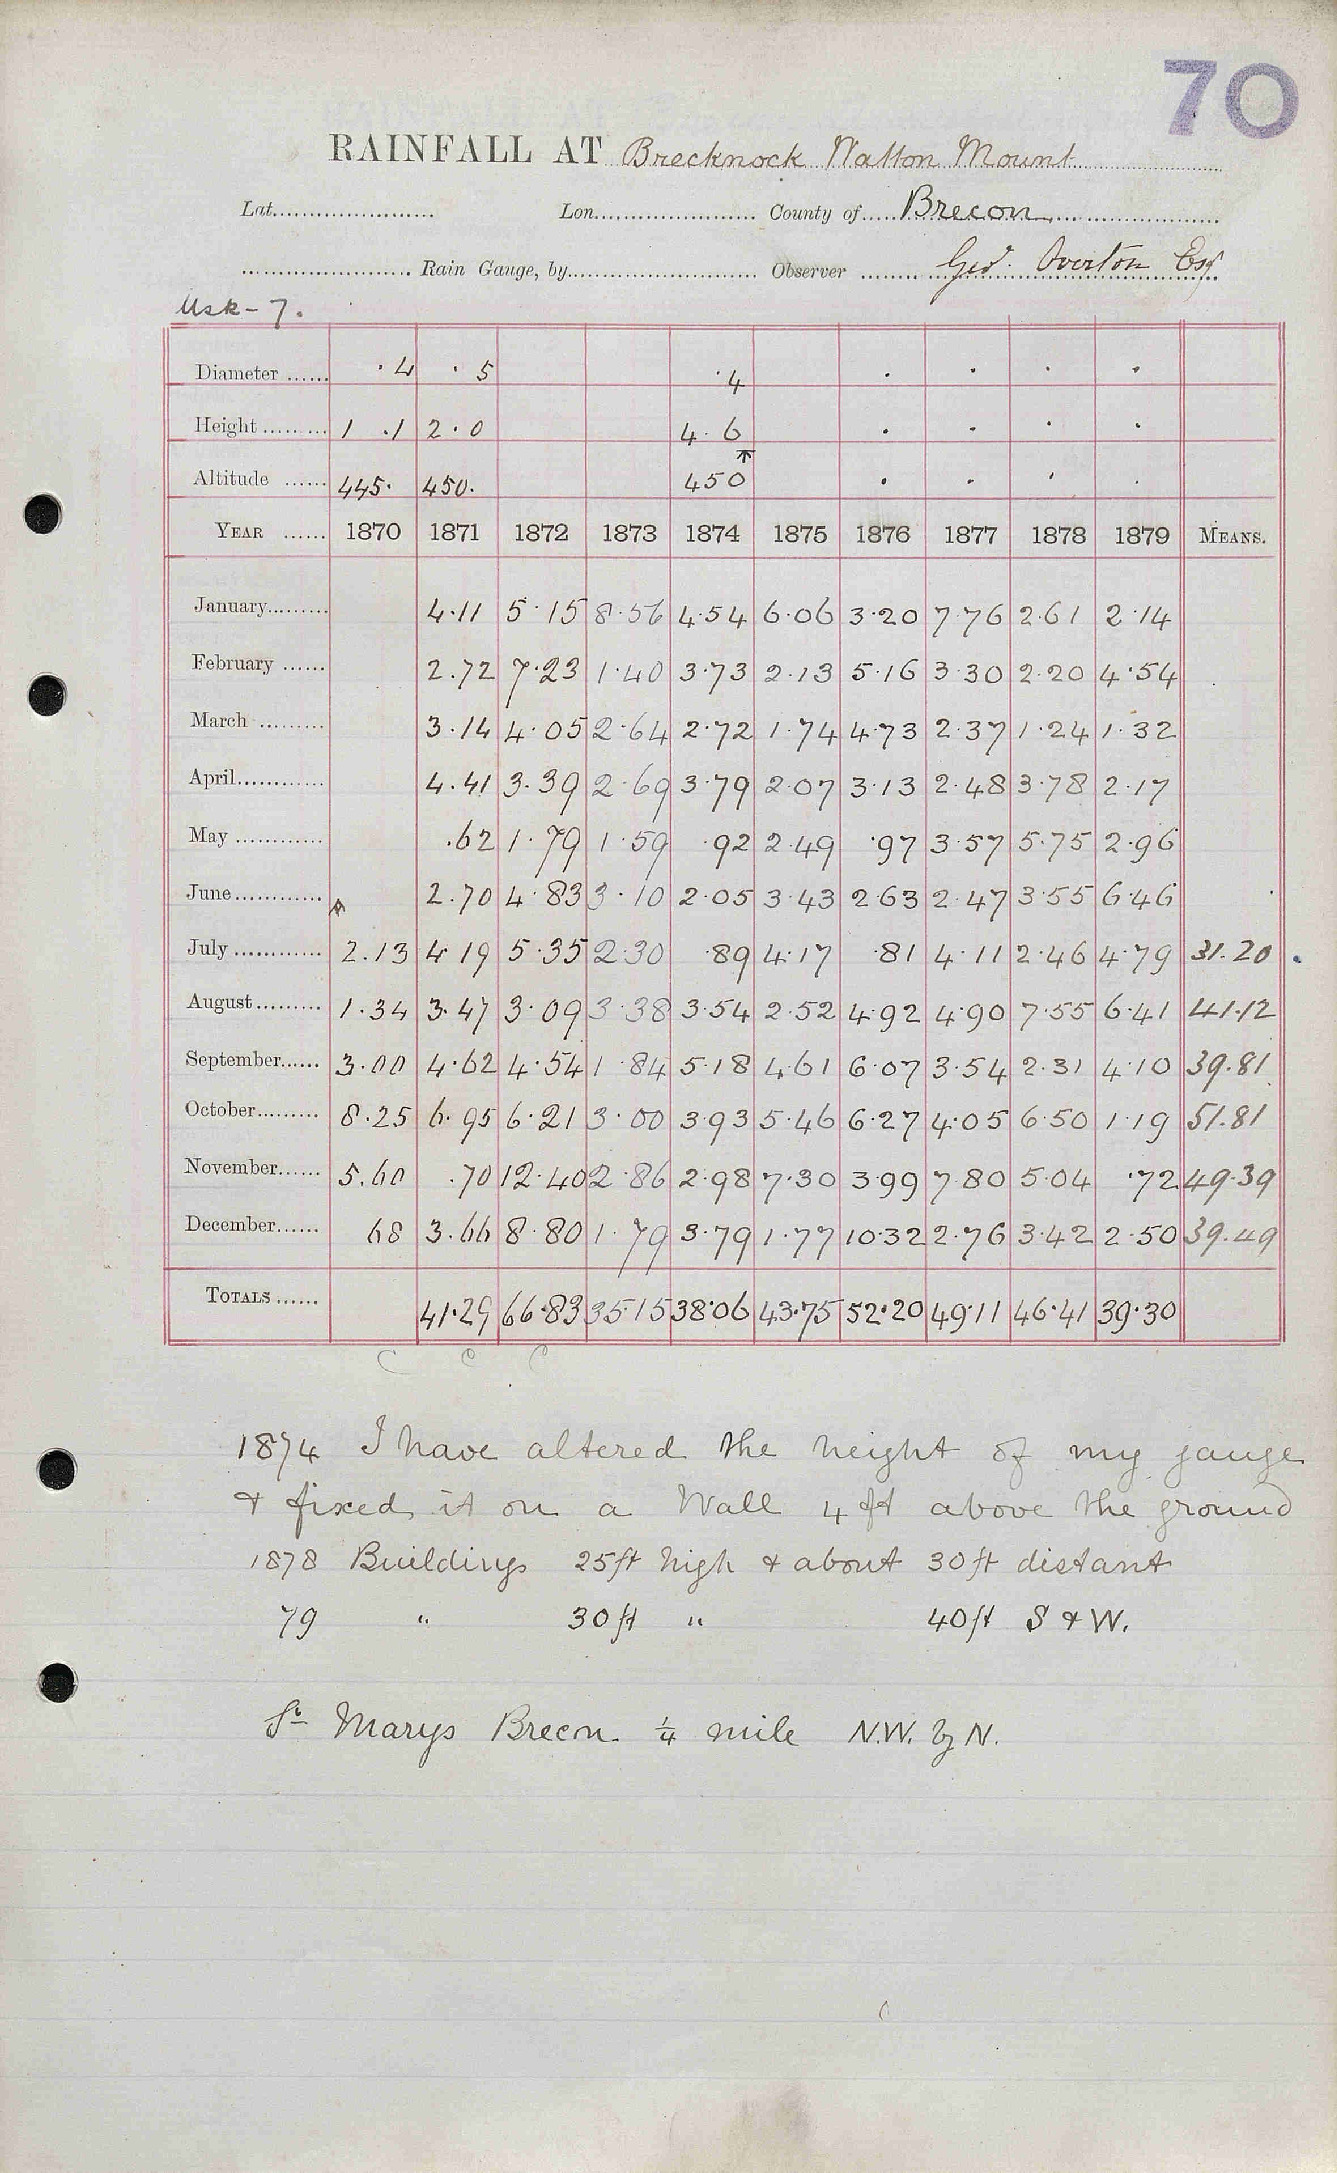 70
RAINFALL AT Brecknock Watton Mount
Lat. Lon. County of Brecon
Rain Gauge, by Observer Geo. Overton Esq
Usk - 7.
Diameter ·4 ·5 ·4 · · · ·
Height 1 .1 2·0 4·6 · · · ·
Altitude 445· 450. 450 · · · ·
YEAR 1870 1871 1872 1873 1874 1875 1876 1877 1878 1879 MEANS.
January 4·11 5·15 8·56 4·54 6·06 3·20 7·76 2·61 2·14
February 2.72 7·23 1·40 3·73 2·13 5·16 3·30 2·20 4·54
March 3·14 4·05 2·64 2·72 1·74 4·73 2·37 1·24 1·32
April 4.41 3·39 2·69 3·79 2·07 3·13 2·48 3·78 2·17
May .62 1·79 1·59 ·92 2·49 ·97 3·57 5·75 2·96
June 2.70 4·83 3·10 2·05 3·43 2·63 2·47 3·55 6·46
July 2.13 4·19 5·35 2·30 ·89 4·17 ·81 4·11 2·46 4·79 31.20
August 1·34 3·47 3·09 3·38 3·54 2·52 4·92 4·90 7·55 6·41 41·12
September 3·00 4·62 4·54 1·84 5·18 4·61 6·07 3·54 2·31 4·10 39.81
October 8·25 6·95 6·21 3·00 3·93 5·46 6·27 4·05 6·50 1·19 51.81
November 5.60 .70 12·40 2·86 2·98 7·30 3·99 7·80 5·04 ·72 49·39
December 68 3.66 8·80 1·79 3·79 1·77 10·32 2·76 3·42 2·50 39.49
TOTALS 41·29 66·83 35·15 38·06 43·75 52·20 49·11 46·41 39·30
C C C
1874 I have altered the height of my gauge
& fixed it on a Wall 4 ft above the ground
1878 Buildings 25ft high & about 30ft distant
79 " 30ft " 40ft S & W.
St Marys Brecon. ¼ mile N.W. by N.